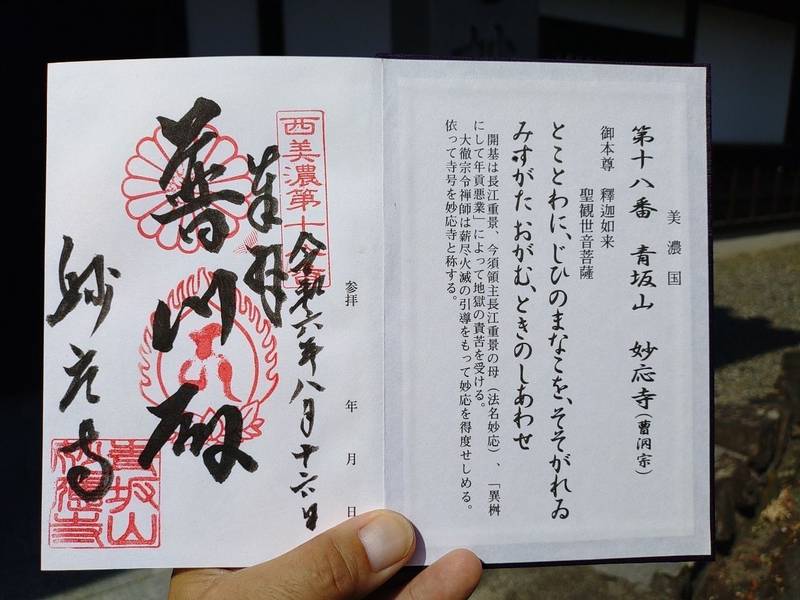 美濃国
第十八番 青坂山 妙応寺(曹洞宗)
御本尊 釋迦如来
聖観世音菩薩
とことわに、じひのまなこを、そそがれる
みすがた おがむ、ときのしあわせ
開基は長江重景、今須領主長江重景の母(法名妙応)、「異桝
にして年貢悪業」によって地獄の責苦を受ける。
大徹宗令禅師は薪尽火滅の引導をもって妙応を得度せしめる。
依って寺号を妙応寺と称する。
参拝 年 月 日
令和六年八月十六日
西美濃第十
奉拝
普門殿
妙応寺
青坂山
妙應寺